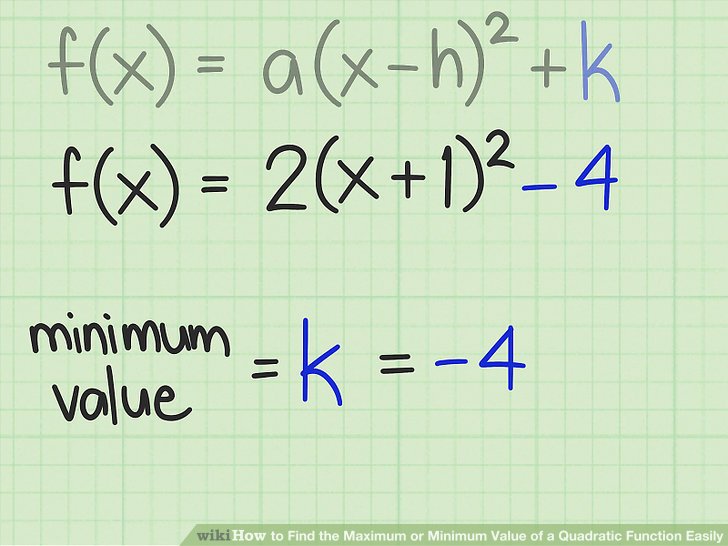 f(x) = a(x-h)² + k
f(x) = 2(x+1)² - 4
minimum
value
= k = -4
wikiHow to Find the Maximum or Minimum Value of a Quadratic Function Easily